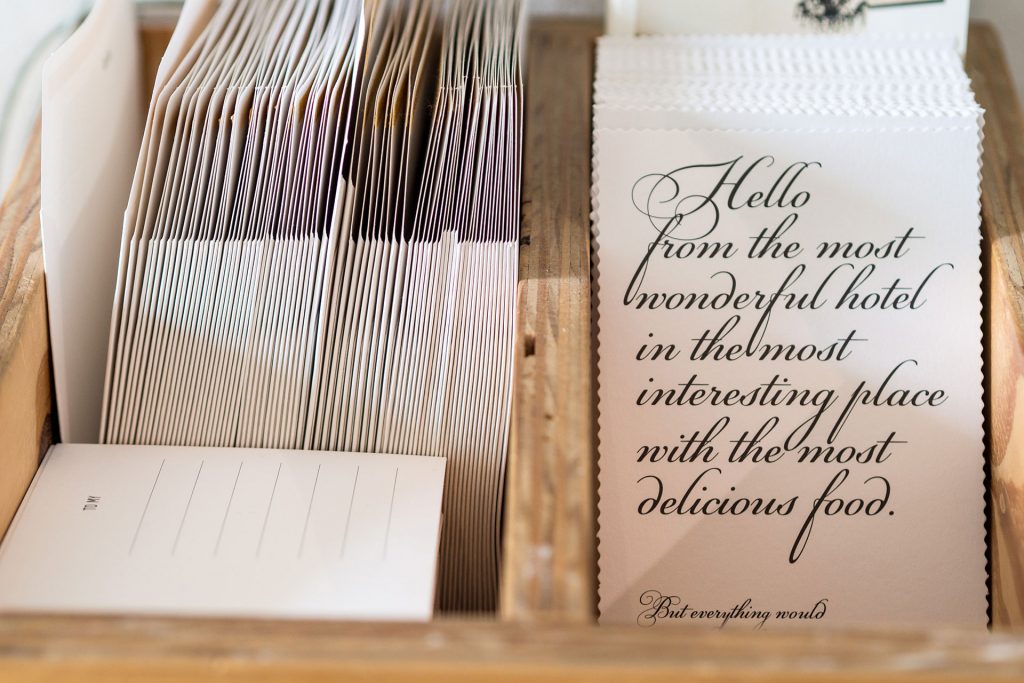 TO MY
Hello
from the most
wonderful hotel
in the most
interesting place
with the most
delicious food.
But everything would